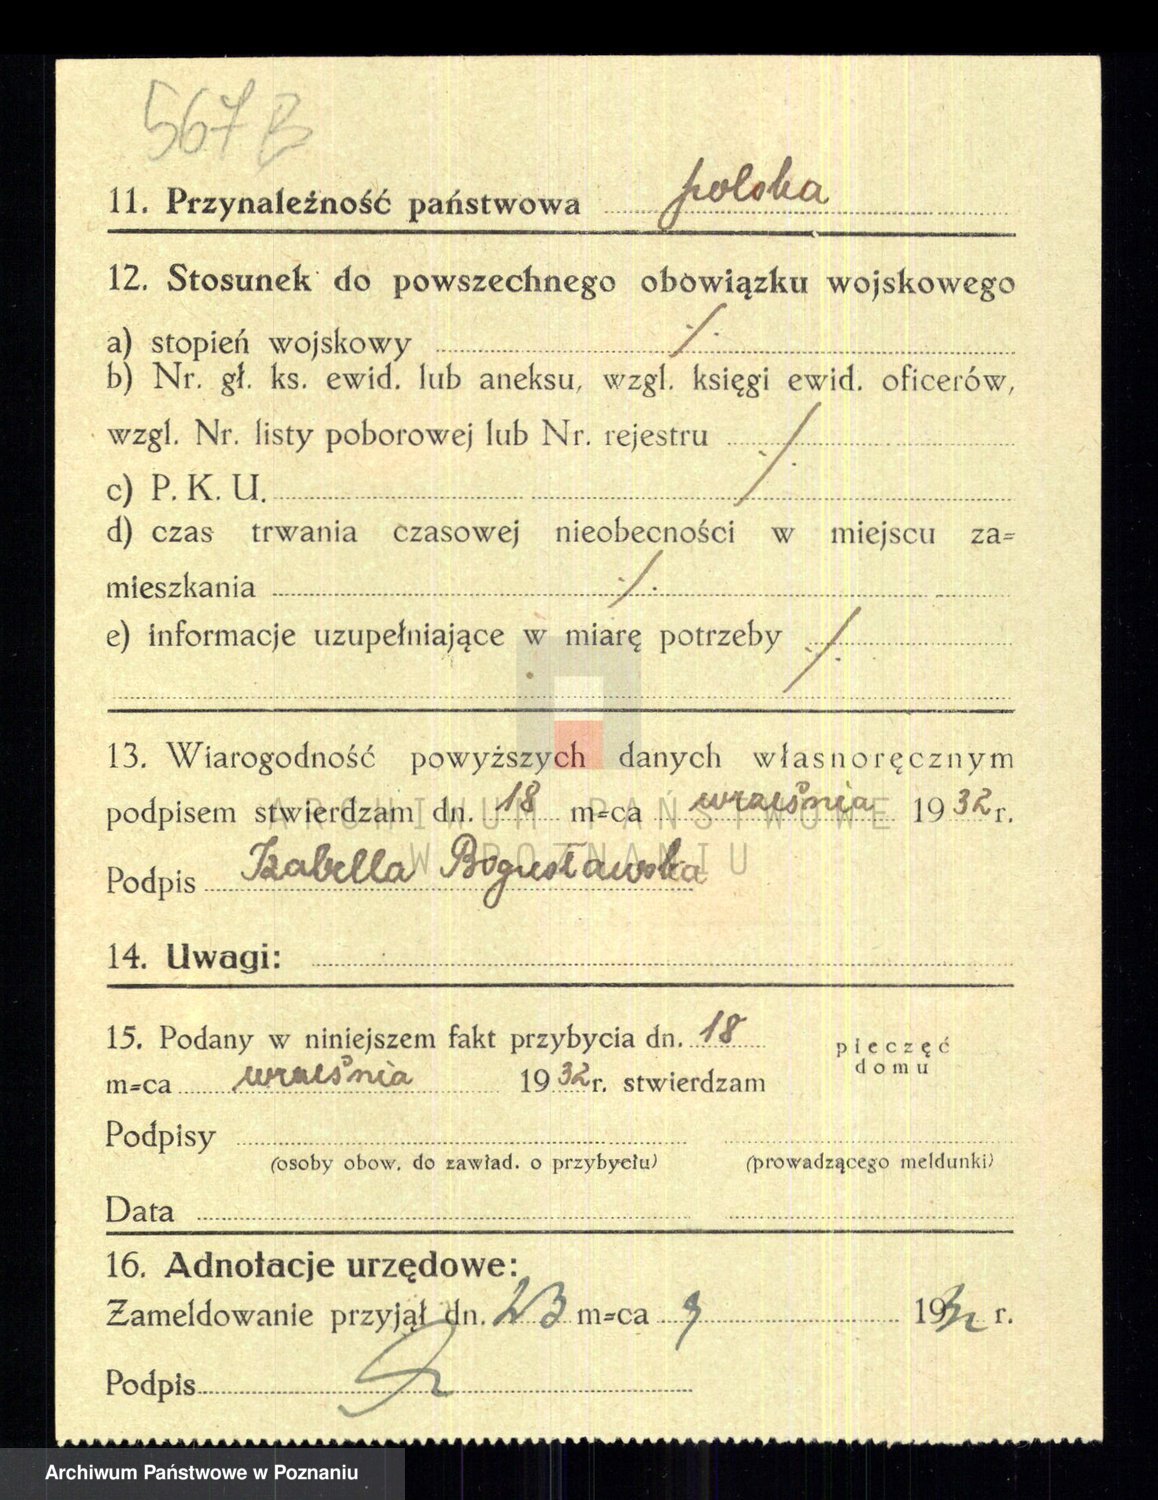 567 B
11. Przynależność państwowa polska
12. Stosunek do powszechnego obowiązku wojskowego
a) stopień wojskowy ./.
b) Nr. gł. ks. ewid. lub aneksu, wzgl. księgi ewid. oficerów,
wzgl. Nr. listy poborowej lub Nr. rejestru ./.
c) P. K. U.
d) czas trwania czasowej nieobecności w miejscu za=
mieszkania ./.
e) informacje uzupełniające w miarę potrzeby ./.
13. Wiarogodność powyższych danych własnoręcznym
podpisem stwierdzam dn. 18 m=ca września 1932 r.
ARCHIWUM PAŃSTWOWE
W POZNANIU
Podpis Izabella Bogusławska
14. Uwagi:
15. Podany w niniejszem fakt przybycia dn. 18
m=ca września 1932 r. stwierdzam
pieczęć
domu
Podpisy
(osoby obow. do zawład. o przybyciu) (prowadzącego meldunki)
Data
16. Adnotacje urzędowe:
Zameldowanie przyjął dn. 23 m=ca 9 1932 r.
Podpis
Archiwum Państwowe w Poznaniu